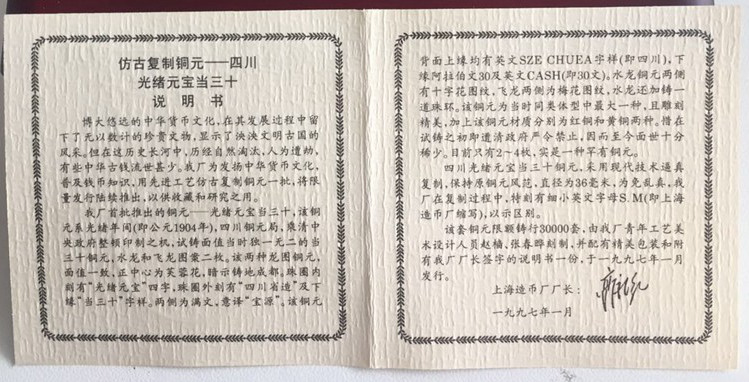 仿古复制铜元——四川
光绪元宝当三十
说明书
博大悠远的中华货币文化，在其发展过程中留
下了无以数计的珍贵文物，显示了泱泱文明古国的
风采。但在这历史长河中，历经自然淘汰，人为遭劫，
有些中华古钱流世甚少。我厂为发扬中华货币文化，
普及钱币知识，用先进工艺仿古复制铜元一批，将限
量发行陆续推出，以供收藏和研究之用。
我厂首批推出的铜元——光绪元宝当三十，该铜
元系光绪年间（即公元1904年），四川铜元局，乘清中
央政府整顿印制之机，试铸面值当时独一无二的当
三十铜元，水龙和飞龙图案二枚。该两种龙图铜元，
面值一致，正中心为芙蓉花，暗示铸地成都。珠圈内
刻有“光绪元宝”四字，珠圈外刻有“四川省造”及下
缘“当三十”字样。两侧为满文，意译“宝源”。该铜元
背面上缘均有英文SZE CHUEA字样（即四川），下
缘阿拉伯文30及英文CASH（即30文）。水龙铜元两侧
有十字花图纹，飞龙两侧为梅花图纹，水龙还加铸一
道珠环。该铜元为当时同类体型中最大一种，且雕刻
精美，加上该铜元材质分别为红铜和黄铜两种。惜在
试铸之初即遭清政府严令禁止，因而至今面世十分
稀少。目前只有2～4枚，实是一种罕有铜元。
四川光绪元宝当三十铜元，采用现代技术逼真
复制，保持原铜元风范，直径为36毫米，为免乱真，我
厂在复制过程中，特刻有细小英文字母S.M（即上海
造币厂缩写），以示区别。
该套铜元限额铸行30000套，由我厂青年工艺美
术设计人员赵樯，张春晔刻制，并配有精美包装和附
有我厂厂长签字的说明书一份，于一九九七年一月
发行。
上海造币厂厂长：
一九九七年一月